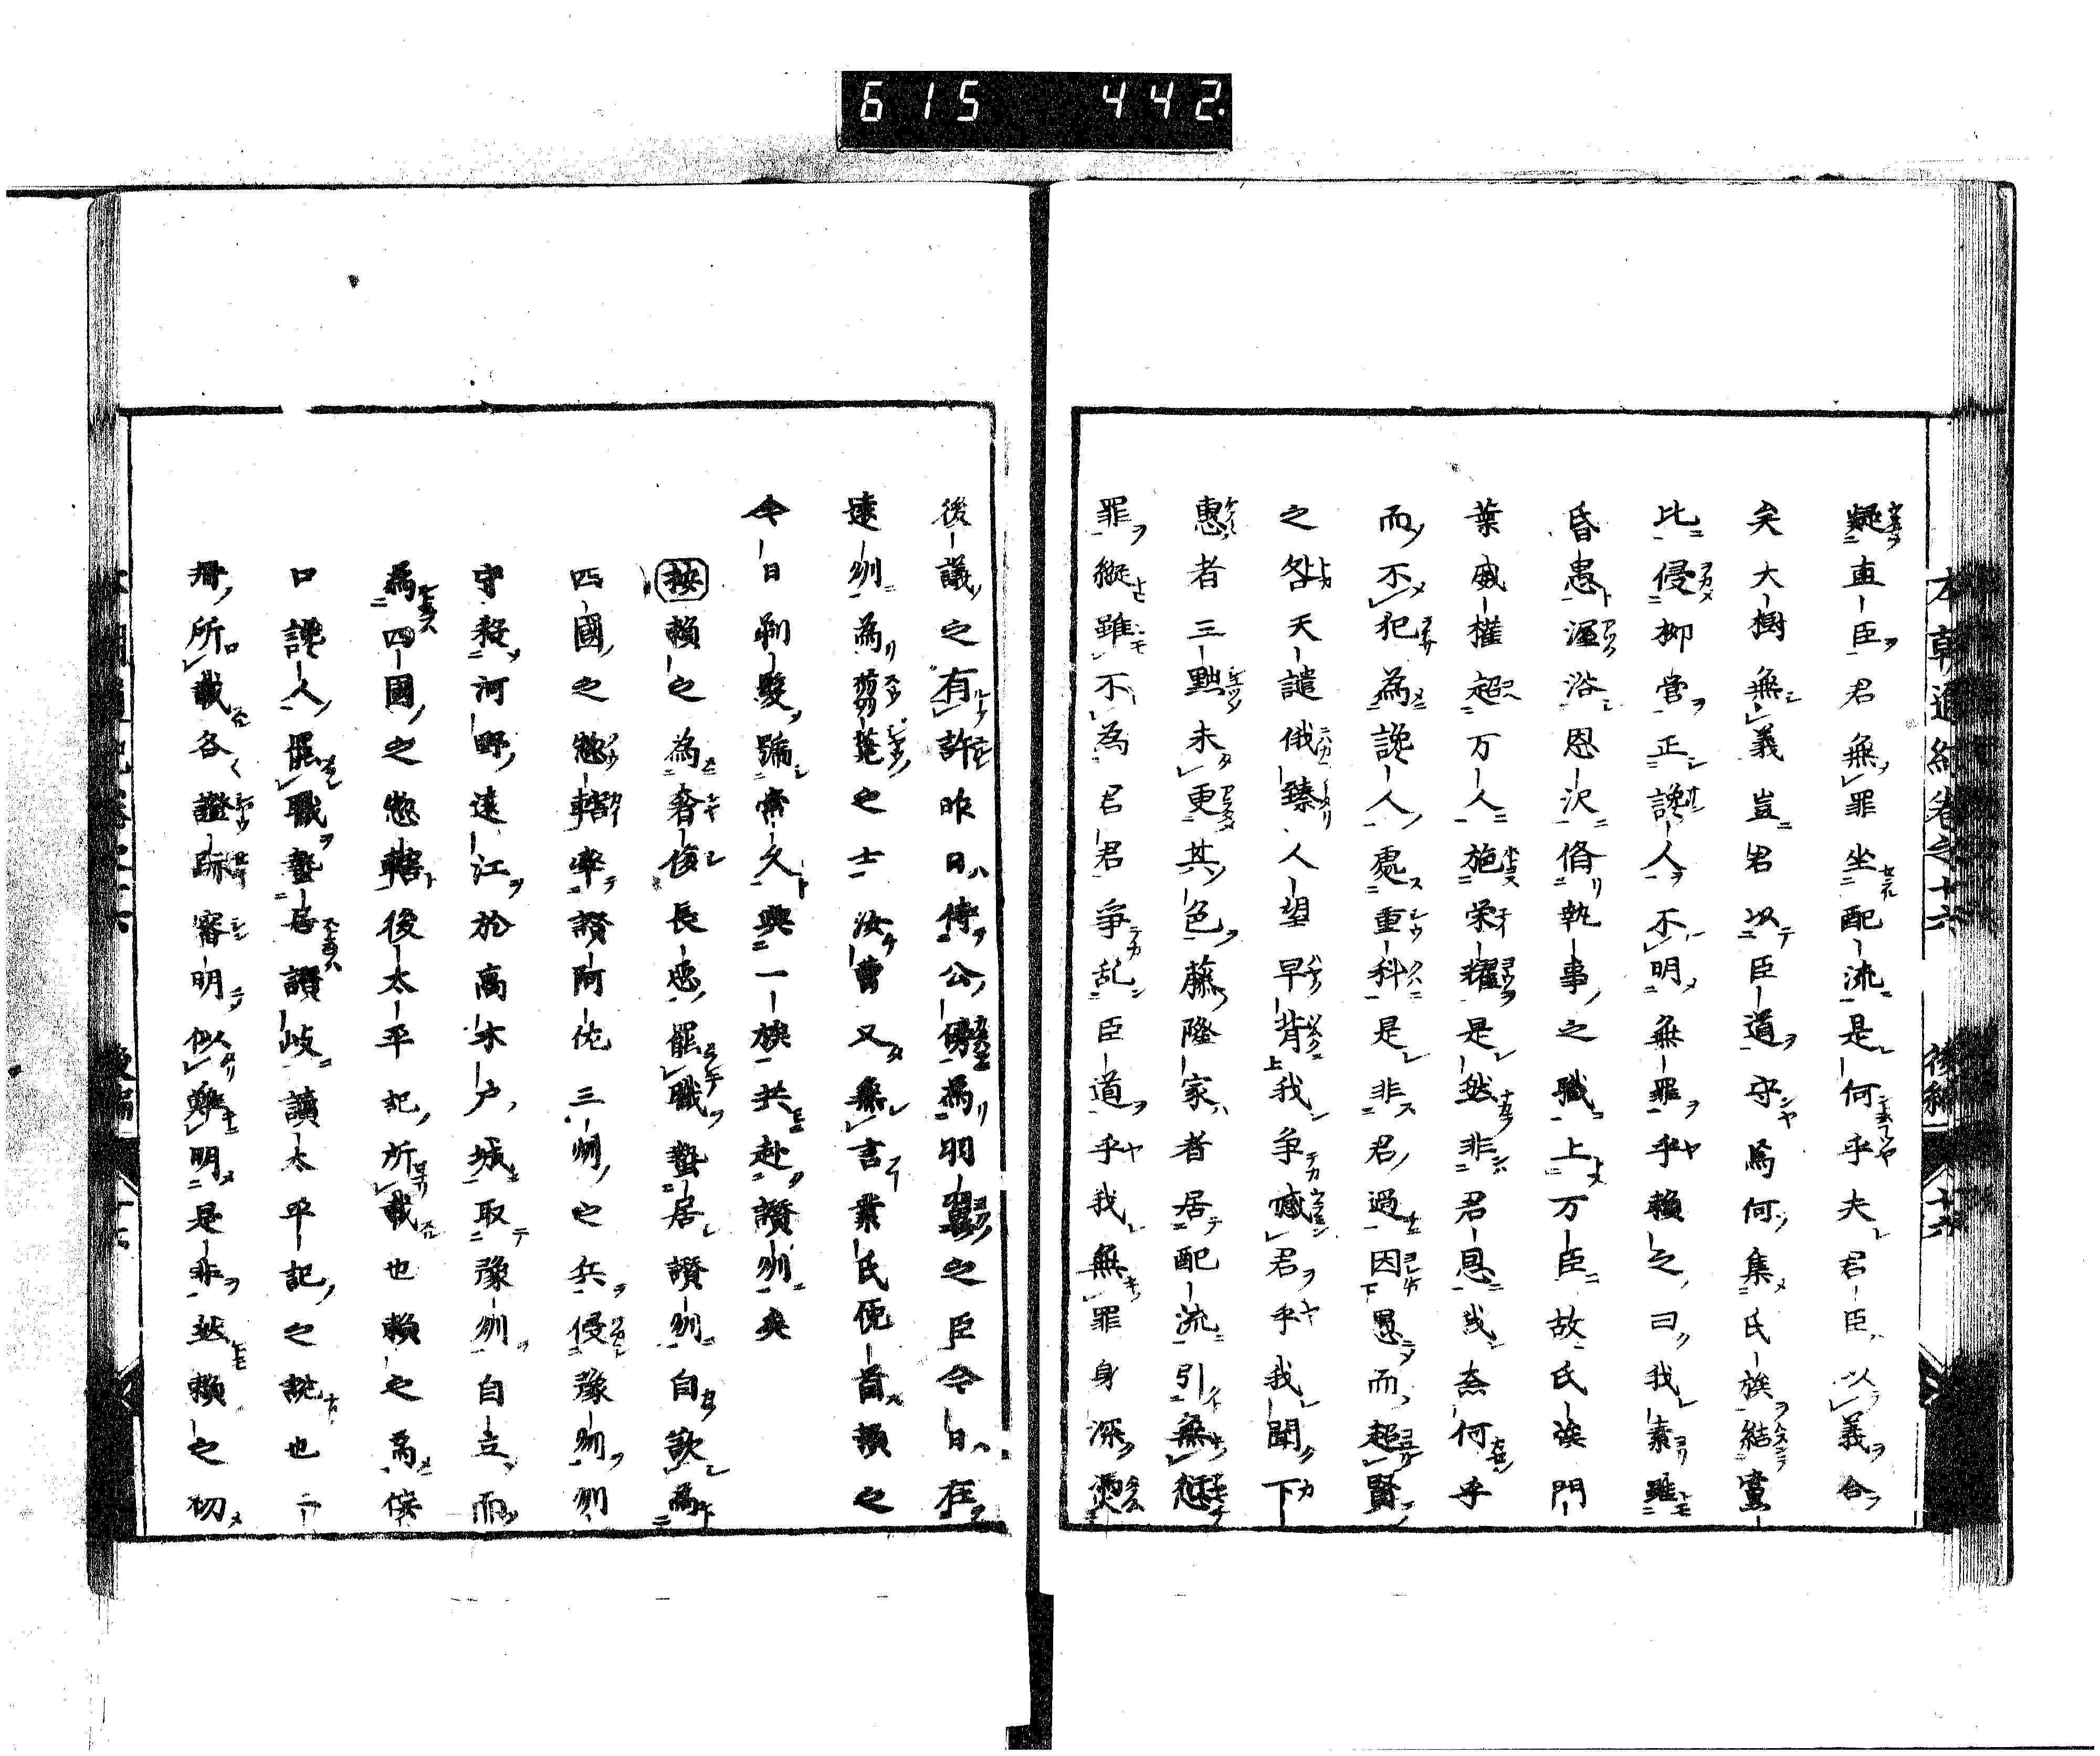 615 442.
本朝通紀卷之十六 後編 十六
疑直臣君無罪坐配流是何乎夫君臣以義合
矣大樹無義豈君以臣道守焉何集氏族結黨
比侵柳営正讒人不明無罪乎頼之曰我素雖
昏愚渥浴恩沢脩執事之職上万臣故氏族門
葉威權超万人施栄耀是然非君恩或奈何乎
而不犯為讒人處重科是非君過因愚而超賢
之咎天譴俄臻人望早背我争憾君乎我聞下
惠者三黜未更其色藤隆家者居配流引無愆
罪縦雖不為君君争乱臣道乎我無罪身深憑
後議之有許昨日侍公傍為羽翼之臣今日在
遠州為蒭蕘之士汝曹又無言業氏俛首頼之
今日剃髮號常久與一族共赴讃州矣
按頼之為奢侈長惡罷職蟄居讃州自歎為
四國之惣轄率讃阿佐三州之兵侵豫州州
守殺河野遠江於高木戸城取豫州自立而
為四國之惣轄後太平記所載也頼之為倿
口讒人罷職蟄居讃岐讀太平記之説也二
冊所載各證跡審明似難明是非然頼之初